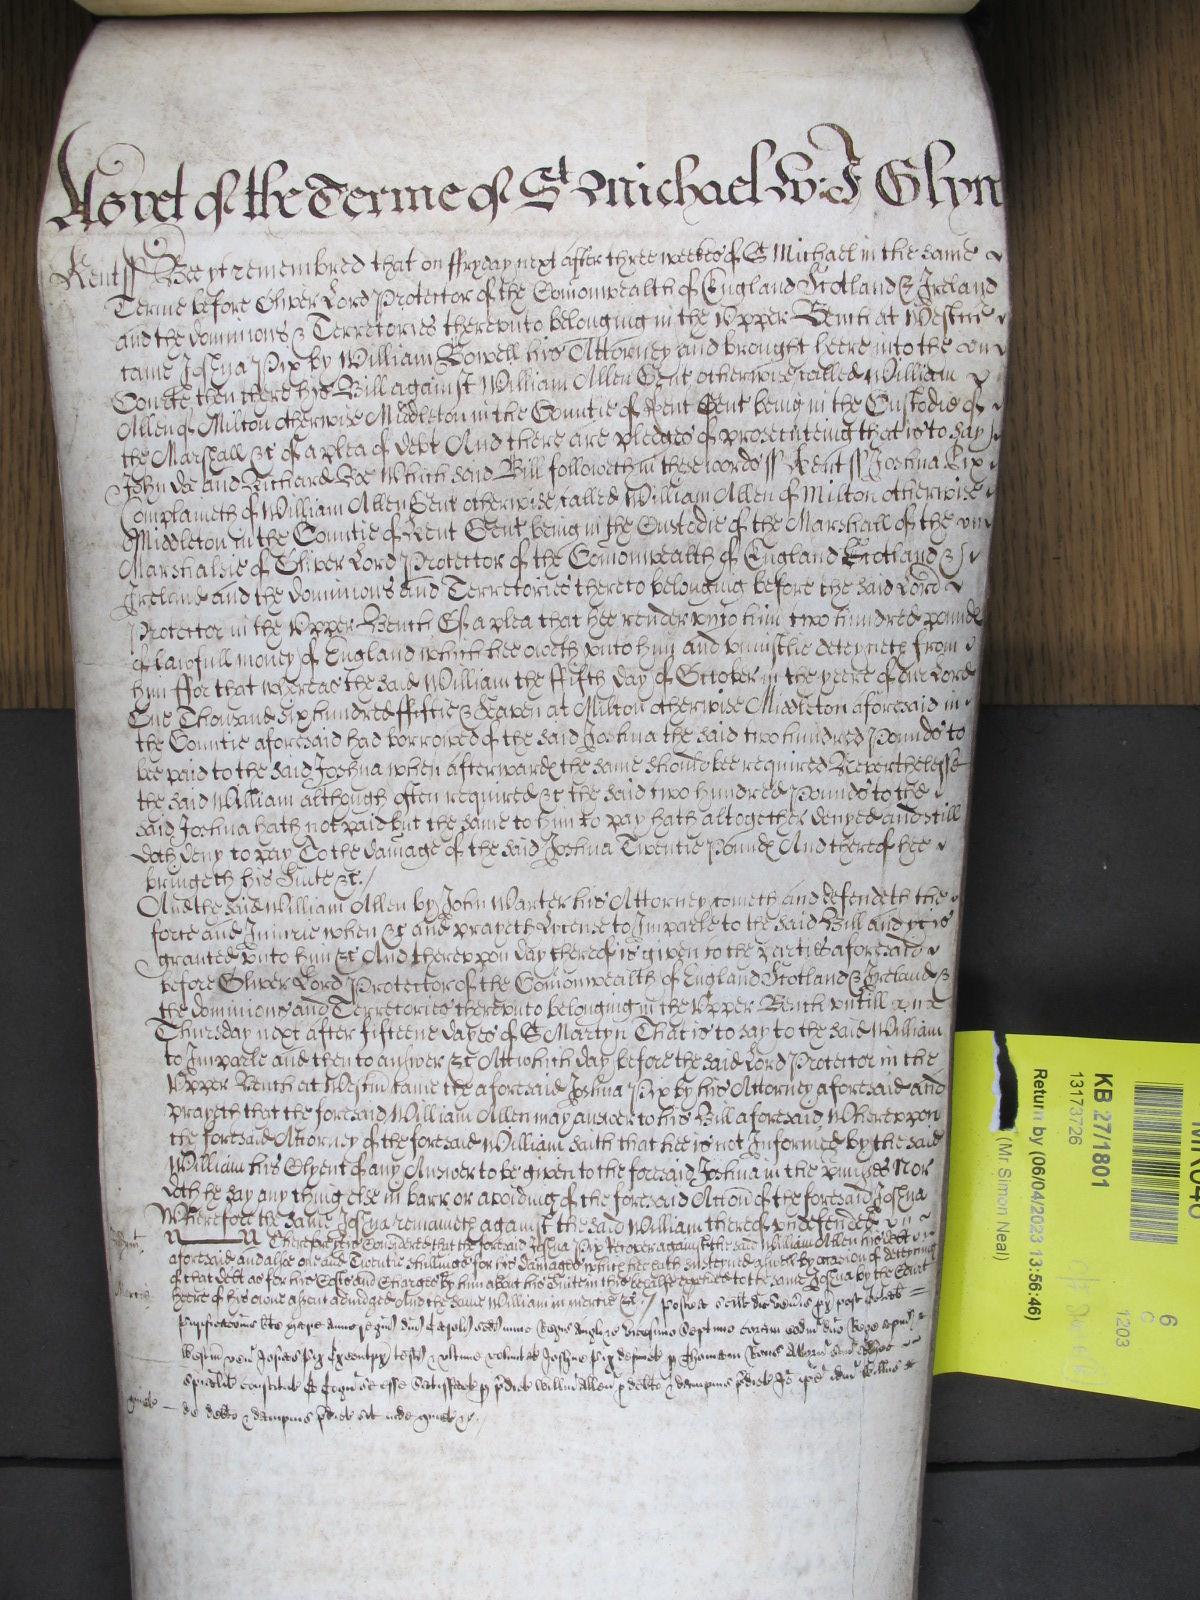 As yet of the Terme of St Michael W:F Glyn
Kent ss Bee yt remembred that on ffryday next after three weekes of S Michael in the same
Terme before Oliver Lord Protector of the Comonwealth of England Scotland & Ireland
and the dominions & Territories thereunto belonging in the Upper Bench at Westmr
came Joshua Pix by William Rowell his Attorney and brought heere into the
Courte then there his Bill against William Allen Gent otherwise called William
Allen of Milton otherwise Middleton in the Countie of Kent Gent being in the Custodie of
the Marshall &c of a plea of debt And there are pledges of prosecuteing that is to say
John Doe and Richard Roe Which said Bill followeth in these words ss Kent ss Joshua Pix
Complaineth of William Allen Gent otherwise called William Allen of Milton otherwise
Middleton in the Countie of Kent Gent being in the Custodie of the Marshall of the
Marshalsie of Oliver Lord Protector of the Comonwealth of England Scotland &
Ireland and the dominions and Territories thereto belonging before the said Lord
Protector in the Upper Bench Of a plea that hee render unto him two hundred pounds
of lawfull money of England which hee oweth unto him and uniustlie deteyneth from
him ffor that whereas the said William the ffifth day of October in the yeere of our Lord
One Thousand six hundred ffiftie & seaven at Milton otherwise Middleton aforesaid in
the Countie aforesaid had borrowed of the said Joshua the said two hundred Pounds to
bee paid to the said Joshua when afterwards the same should bee required Neverthelesse
the said William although often required &c the said two hundred Pounds to the
said Joshua hath not paid but the same to him to pay hath altogether denyed and still
doth deny to pay To the damage of the said Joshua Twentie Pounds And thereof hee
bringeth his Suite &c./
And the said William Allen by John Warter his Attorney cometh and defendeth the
force and Iniurie when &c and prayeth Lycense to Imparle to the said Bill and yt is
granted unto him &c And thereupon day thereof is given to the parties aforesaid
before Oliver Lord Protector of the Comonwealth of England Scotland & Ireland &
the dominions and Territories thereunto belonging in the Upper Bench untill
Thursday next after fifteene dayes of S Martyn That is to say to the said William
to Imparle and then to answer &c Att which day before the said Lord Protector in the
Upper Bench at Westm came the aforesaid Joshua Pix by his Attorney aforesaid and
prayeth that the foresaid William Allen may answer to his Bill aforesaid Whereupon
the foresaid Attorney of the foresaid William saith that hee is not Informed by the said
William his Clyent of any Answer to be given to the foresaid Joshua in the premises Nor
doth he say any thing else in barr or avoiding of the foresaid Accon of the foresaid Joshua
Wherefore the same Joshua remaineth against the said William thereof undefended
Therefore yt is Considered that the foresaid Joshua Pix Recover against the said William Allen his debt
aforesaid and alsoe one and Twentie shillings for his damages which hee hath susteyned aswell by occasion of deteyning
of that debt as for his Costs and Charges by him about his Suite in this behalfe expended to the same Joshua by the Court
heere of his owne assent adiudged And the same William in mercie &c / Postea scilt die px post
Purificacionis bte Marie Anno regni dni Caroli secundi nunc Regis Anglie vicesimo septimo coram eodm dno Rege apud
Westm ven Josias Pix Executor testi & ultime voluntat Joshue Pix defunct p Thomam
spialit constitut Et cogn se esse satisfact p pdict Willm Allen p debto & dampnis pdict Io ipse idm Willus
quiet — de debto & dampnis pdict sit inde quiet &c.
KB 27/1801
13173726
Return by (06/04/2023 13:56:46)
(Mr Simon Neal)
6
C
1203